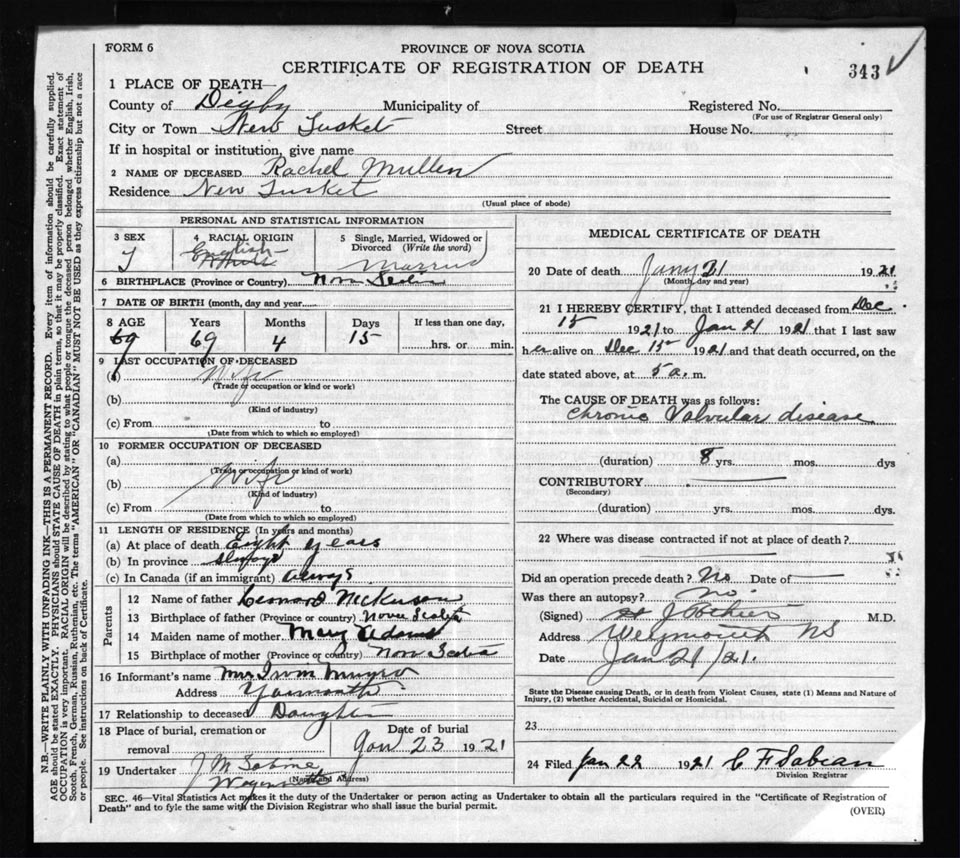 FORM 6
PROVINCE OF NOVA SCOTIA
CERTIFICATE OF REGISTRATION OF DEATH
343
1 PLACE OF DEATH—
County of Digby Municipality of Registered No.
(For use of Registrar General only)
City or Town New Tusket Street House No.
If in hospital or institution, give name
2 NAME OF DECEASED Rachel Mullen
Residence New Tusket
(Usual place of abode)
PERSONAL AND STATISTICAL INFORMATION
3 SEX 4 RACIAL ORIGIN 5 Single, Married, Widowed or Divorced (Write the word)
F English Married
6 BIRTHPLACE (Province or Country) Nova Scotia
7 DATE OF BIRTH (month, day and year)
8 AGE Years Months Days If less than one day,
69 69 4 15 hrs. or min.
9 LAST OCCUPATION OF DECEASED
(a) Wife
(Trade or occupation or kind or work)
(b)
(Kind of industry)
(c) From to
(Date from which to which so employed)
10 FORMER OCCUPATION OF DECEASED
(a)
(Trade or occupation or kind of work)
(b) Wife
(Kind of industry)
(c) From to
(Date from which to which so employed)
11 LENGTH OF RESIDENCE (In years and months)
(a) At place of death Eight years
(b) In province Always
(c) In Canada (if an immigrant) Always
Parents
12 Name of father Leonard Nickerson
13 Birthplace of father (Province or country) Nova Scotia
14 Maiden name of mother Mary Adams
15 Birthplace of mother (Province or country) Nova Scotia
16 Informant's name Mrs
Address Yarmouth
17 Relationship to deceased Daughter
18 Place of burial, cremation or removal Date of burial
Jan 23 1921
19 Undertaker J M
Weymouth
(Name and Address)
MEDICAL CERTIFICATE OF DEATH
20 Date of death Jany 21 1921
(Month, day and year)
21 I HEREBY CERTIFY, that I attended deceased from Dec
15 1921 to Jan 21 1921 that I last saw
her alive on Dec 15 1921 and that death occurred, on the
date stated above, at 5 a. m.
The CAUSE OF DEATH was as follows:
Chronic Valvular disease
(duration) 8 yrs. mos. dys
CONTRIBUTORY
(Secondary)
(duration) yrs. mos. dys.
22 Where was disease contracted if not at place of death?
Did an operation precede death? No Date of
Was there an autopsy? No.
(Signed) M.D.
Address Weymouth NS
Date Jan 21/21.
State the Disease causing Death, or in death from Violent Causes, state (1) Means and Nature of
Injury, (2) whether Accidental, Suicidal or Homicidal.
23
24 Filed Jan 22 1921 C F
Division Registrar
SEC. 46—Vital Statistics Act makes it the duty of the Undertaker or person acting as Undertaker to obtain all the particulars required in the "Certificate of Registration of
Death" and to fyle the same with the Division Registrar who shall issue the burial permit.
(OVER)
N.B.—WRITE PLAINLY WITH UNFADING INK—THIS IS A PERMANENT RECORD. Every item of information should be carefully supplied.
AGE should be stated EXACTLY. PHYSICIANS should STATE CAUSE OF DEATH in plain terms, so that it may be properly classified. Exact statement of
OCCUPATION is very important. RACIAL ORIGIN will be described by stating to what people or tongue the deceased person belonged whether English, Irish,
Scotch, French, German, Russian, Ruthenian, etc. The terms "AMERICAN" OR "CANADIAN" MUST NOT BE USED as they express citizenship but not a race
or people. See instructions on back of Certificate.